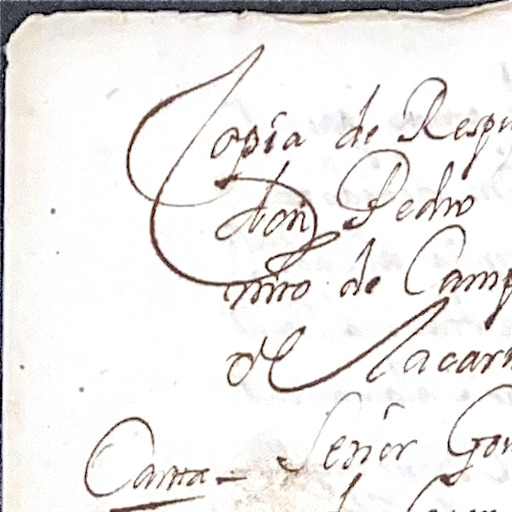 Copia de Respu
don Pedro
niro de Camp
el Nacar
Carta - Señor Gon